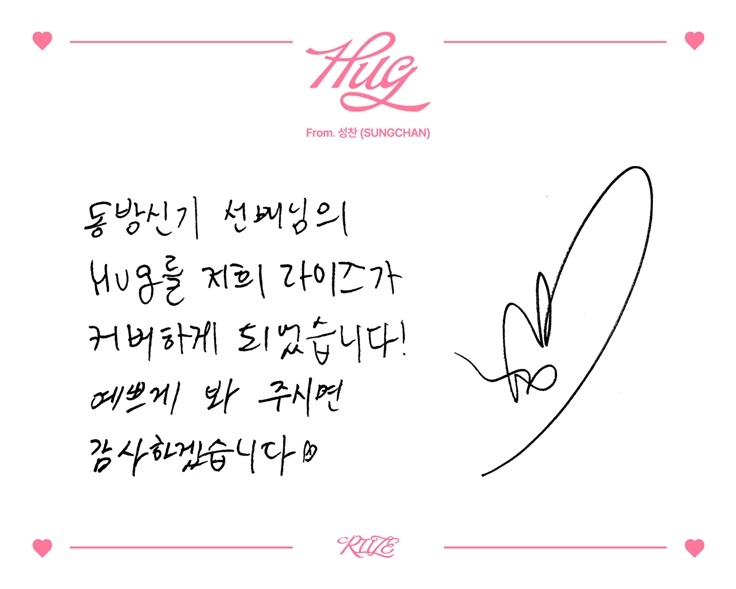 Hug
From. 성찬 (SUNGCHAN)
동방신기 선배님의
Hug를 저희 라이즈가
커버하게 되었습니다!
예쁘게 봐 주시면
감사하겠습니다
RIIZE